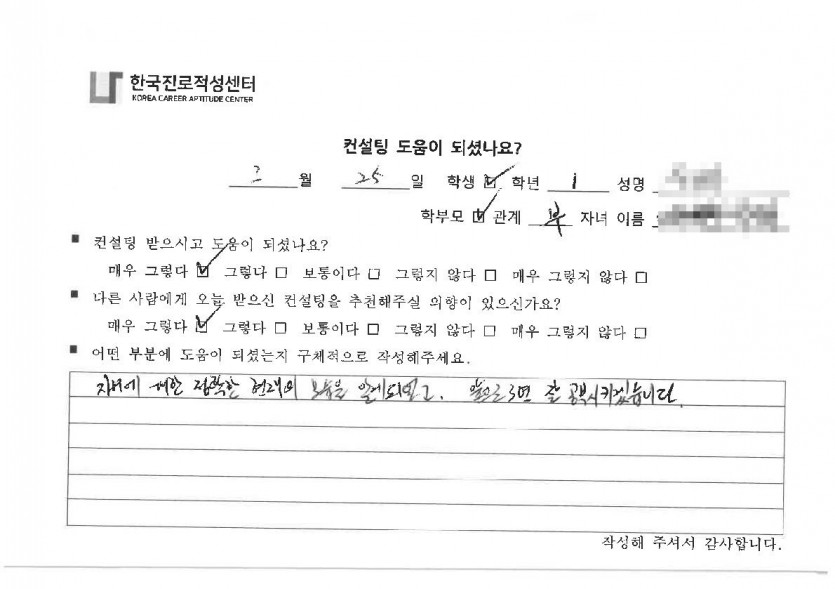 한국진로적성센터
KOREA CAREER APTITUDE CENTER
컨설팅 도움이 되셨나요?
월 25 일 학생 ☑ 학년 1 성명
학부모 ☑ 관계 부 자녀 이름
■ 컨설팅 받으시고 도움이 되셨나요?
매우 그렇다 ☑ 그렇다 □ 보통이다 □ 그렇지 않다 □ 매우 그렇지 않다 □
■ 다른 사람에게 오늘 받으신 컨설팅을 추천해주실 의향이 있으신가요?
매우 그렇다 ☑ 그렇다 □ 보통이다 □ 그렇지 않다 □ 매우 그렇지 않다 □
■ 어떤 부분에 도움이 되셨는지 구체적으로 작성해주세요.
자녀에 대한 정확한 현재의 모습을 알게되었고. 잘 공부시키겠습니다.
작성해 주셔서 감사합니다.